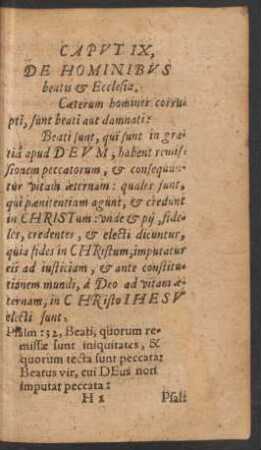 CAPVT IX,
DE HOMINIBVS
beatis & Ecclesia.
Cæterum homines corru
pti, sunt beati aut damnati:
Beati sunt, qui sunt in gra
tia apud DEVM, habent remis
sionem peccatorum, & consequun
tur vitam æternam: quales sunt,
qui pænitentiam agunt, & credunt
in CHRISTum: vnde & pij, fide
les, credentes, & electi dicuntur,
quia fides in CHRistum, imputatur
eis ad iusticiam, & ante constitu
tionem mundi, à Deo ad vitam æ
ternam, in CHRisto IHESV
electi sunt.
Psalm: 32, Beati, quorum re-
missæ sunt iniquitates, &
quorum tecta sunt peccata:
Beatus vir, cui DEus non
imputat peccata:
H 2 Psal: